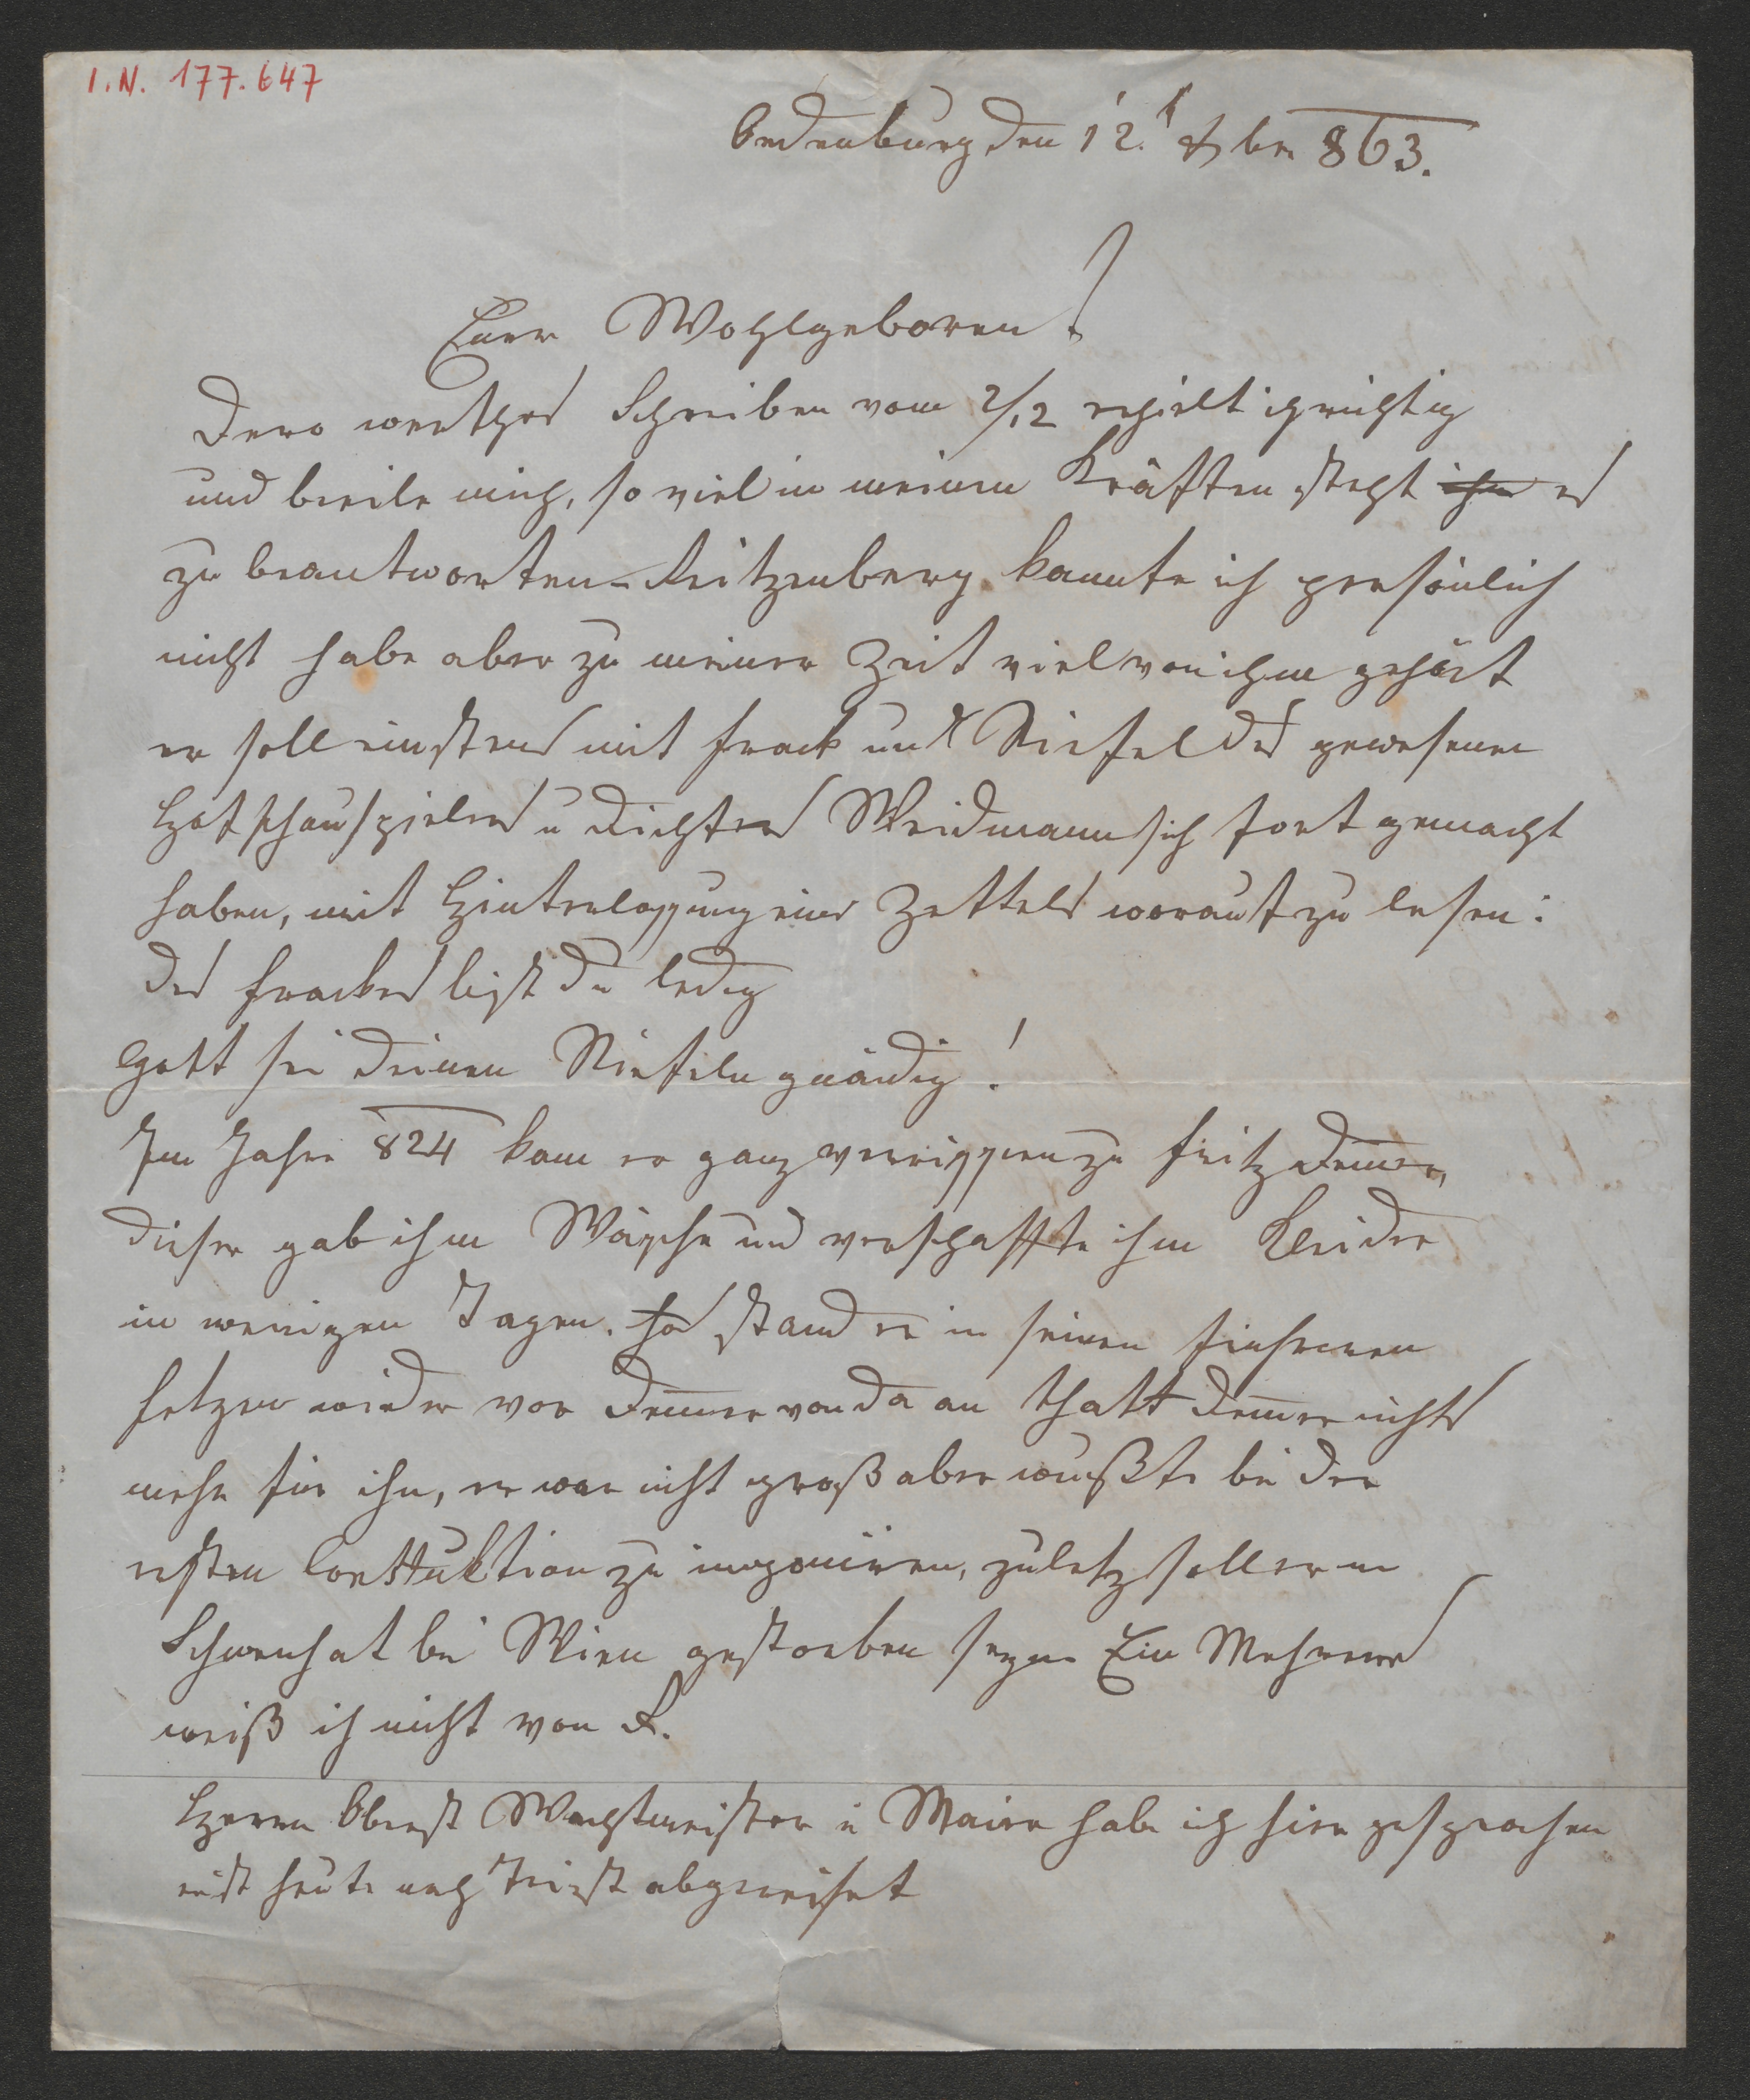 I.N. 177.647
Oedenburg den 12. Xber 863.
Euer Wohlgeboren!
Dero werthes Schreiben vom 2/12 erhielt ich richtig
und beeile mich, so viel in meinen Kräften steht ihm es
zu beantworten – Reitzenberg kannte ich persönlich
nicht habe aber zu meiner Zeit viel von ihm gehört
er soll einstens mit Frack und Stiefel des gewesenen
Hofschauspielers u Dichters Weidmann sich fort gemacht
haben, mit Hinterlassung eines Zettels worauf zu lesen:
Des Frackes bist du ledig
Gott sei deinen Stiefeln gnädig!
Im Jahre 824 kam er ganz verrissen zu Fritz Demmer,
dieser gab ihm Wäsche und verschaffte ihm Kleider
in wenigen Tagen. stand er in seinen früheren
Fetzen wieder vor Demmer von da an thatt Demmer nichts
mehr für ihn, er war nicht groß aber wußte bei der
ersten zu imponieren, zuletz soll er in
Schwechat bei Wien gestorben seyn Ein Mehreres
weiß ich nicht von R.
Herrn Oberst Wachtmeister v Maire habe ich hier gesprochen
er ist heute nach Triest abgereiset